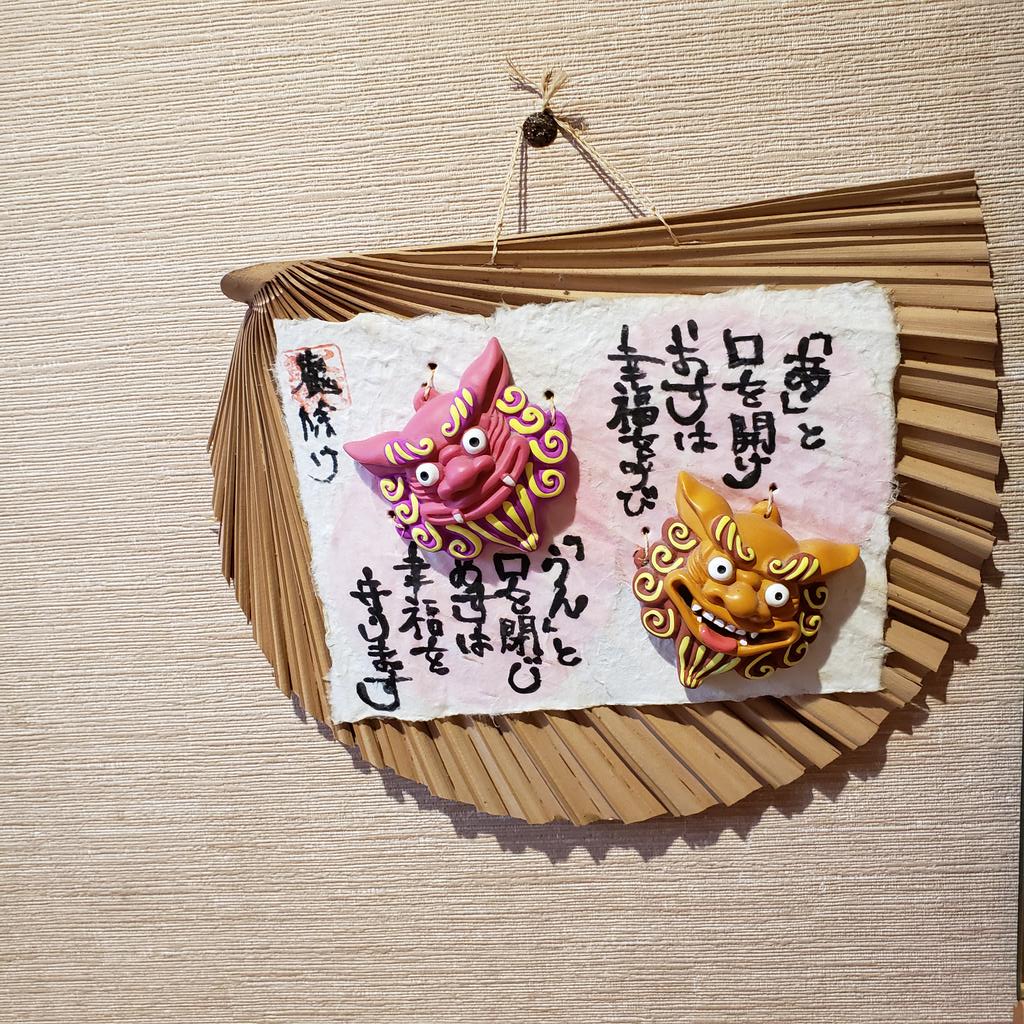 「あ」と
口を開け
おすは
幸福をよび
「うん」と
口を閉じ
めすは
幸福を
魔除け